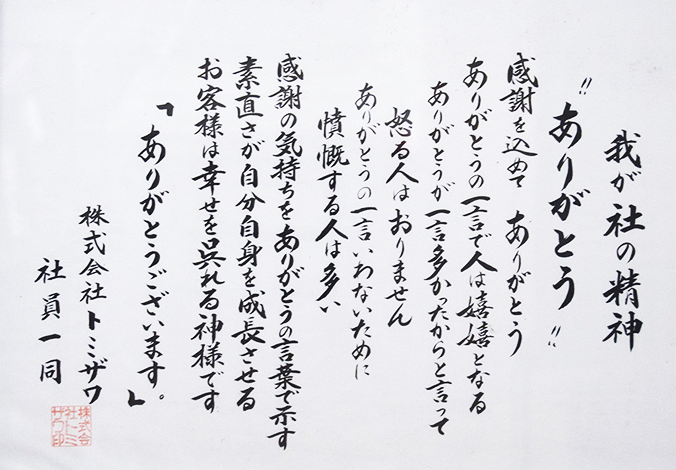 我が社の精神
〝ありがとう〟
感謝を込めて ありがとう
ありがとうの一言で人は嬉嬉となる
ありがとうが一言多かったからと言って
怒る人はおりません
ありがとうの一言いわないために
憤慨する人は多い
感謝の気持ちをありがとうの言葉で示す
素直さが自分自身を成長させる
お客様は幸せを呉れる神様です
「ありがとうございます。」
株式会社トミザワ
社員一同
株式会
社トミ
ザワ印